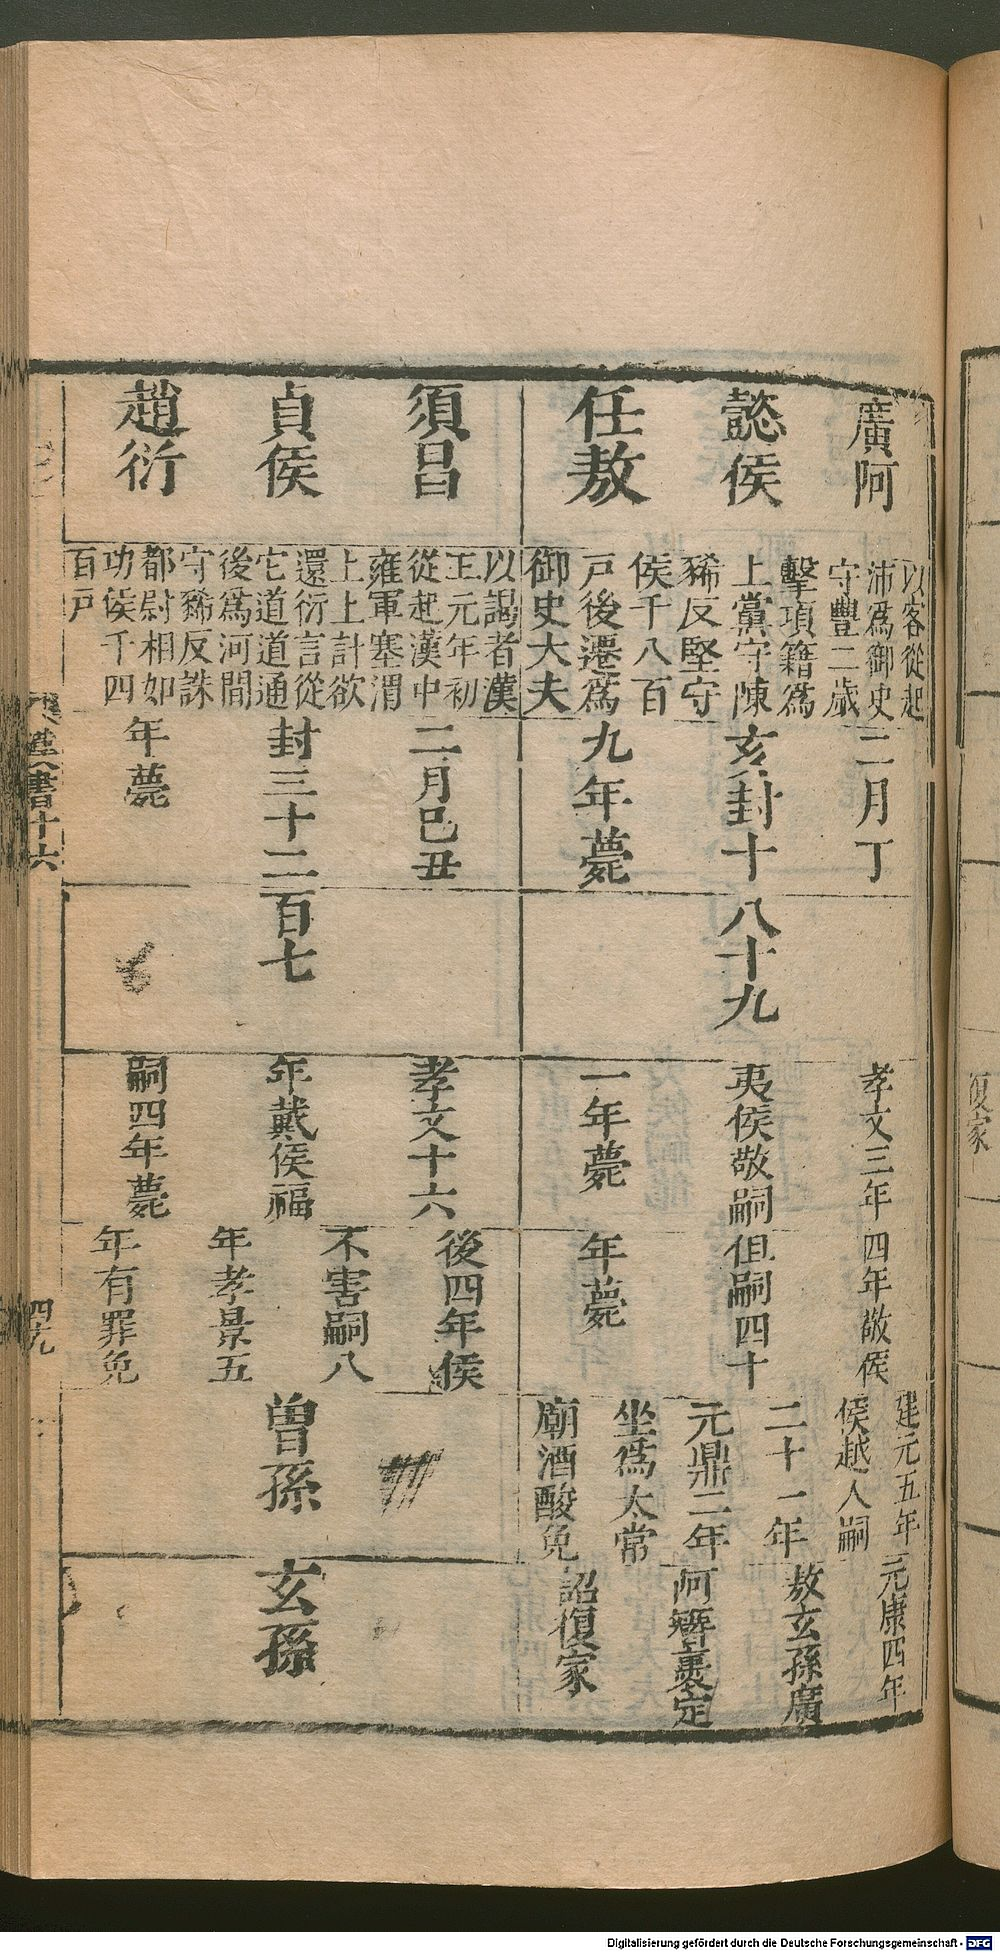 廣阿
懿侯
任敖
以客從起
沛爲御史
守豐二歲
擊項籍爲
上黨守陳
豨反堅守
侯千八百
戸後遷爲
御史大夫
二月丁
亥封十
九年薨
八十九
孝文三年
夷侯敬嗣
一年薨
四年敬侯
但嗣四十
年薨
建元五年
侯越人嗣
二十一年
元鼎二年
坐爲太常
廟酒酸免
元康四年
敖玄孫廣
阿簪褭定
詔復家
須昌
貞侯
趙衍
以謁者漢
王元年初
從起漢中
雍軍塞渭
上上計欲
還衍言從
它道道通
後爲河間
守豨反誅
都尉相如
功侯千四
百戸
二月巳丑
封三十二
年薨
百七
孝文十六
年戴侯福
嗣四年薨
後四年侯
不害嗣八
年孝景五
年有罪免
曾孫
玄孫
漢書十六
四九
復家
Digitalisierung gefördert durch die Deutsche Forschungsgemeinschaft - DFG